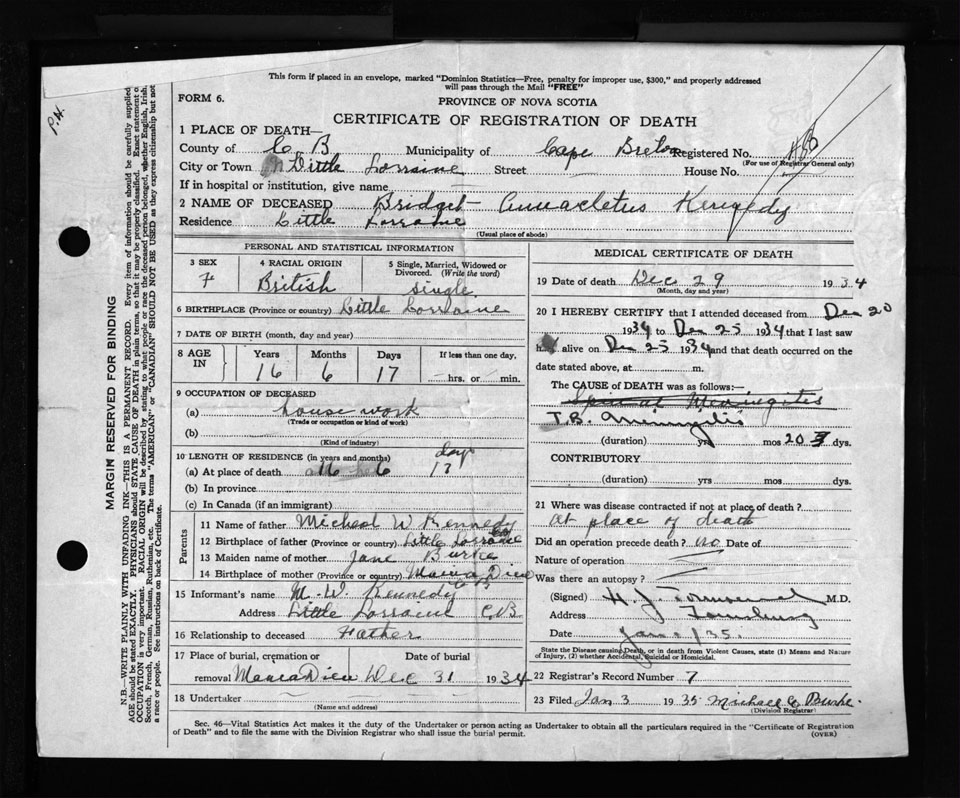 This form if placed in an envelope, marked "Dominion Statistics—Free, penalty for improper use, $300," and properly addressed
will pass through the Mail "FREE"
P.H.
FORM 6.
PROVINCE OF NOVA SCOTIA
CERTIFICATE OF REGISTRATION OF DEATH
1 PLACE OF DEATH—
County of C B Municipality of Cape Breton Registered No.
(For use of Registrar General only)
City or Town Little Lorraine Street House No.
If in hospital or institution, give name
2 NAME OF DECEASED Bridget Annacletus Kennedy
Residence Little Lorraine
(Usual place of abode)
PERSONAL AND STATISTICAL INFORMATION
3 SEX
F
4 RACIAL ORIGIN
British
5 Single, Married, Widowed or
Divorced. (Write the word)
single
6 BIRTHPLACE (Province or country) Little Lorraine
7 DATE OF BIRTH (month, day and year)
8 AGE IN
Years Months Days If less than one day,
16 6 17 hrs. or min.
9 OCCUPATION OF DECEASED
(a) house work
(Trade or occupation or kind of work)
(b)
(Kind of industry)
10 LENGTH OF RESIDENCE (in years and months) days
(a) At place of death 6 13
(b) In province
(c) In Canada (if an immigrant)
Parents
11 Name of father Micheal W Kennedy
12 Birthplace of father (Province or country) Little Lorraine
13 Maiden name of mother Jane Burke
14 Birthplace of mother (Province or country) Mainadieu
15 Informant's name M. W. Kennedy
Address Little Lorraine C.B.
16 Relationship to deceased Father
17 Place of burial, cremation or Date of burial
removal Mainadieu Dec 31 1934
18 Undertaker
(Name and address)
MEDICAL CERTIFICATE OF DEATH
19 Date of death Dec 29 1934
(Month, day and year)
20 I HEREBY CERTIFY that I attended deceased from Dec 20
1934 to Dec 25 1934 that I last saw
h alive on Dec 25 1934 and that death occurred on the
date stated above, at m.
The CAUSE of DEATH was as follows:—
Spinal Meningitis
T.B. Meningitis
(duration) yrs mos 20 dys.
CONTRIBUTORY
(duration) yrs mos dys.
21 Where was disease contracted if not at place of death?
At place of death
Did an operation precede death? no Date of
Nature of operation
Was there an autopsy?
(Signed) H. J. M.D.
Address Louisburg
Date Jan 1/35.
State the Disease causing Death, or in death from Violent Causes, state (1) Means and Nature
of Injury, (2) whether Accidental, Suicidal or Homicidal.
22 Registrar's Record Number 7
23 Filed Jan 3 1935 Michael C Burke.
(Division Registrar)
Sec. 46—Vital Statistics Act makes it the duty of the Undertaker or person acting as Undertaker to obtain all the particulars required in the "Certificate of Registration
of Death" and to file the same with the Division Registrar who shall issue the burial permit.
(OVER)
MARGIN RESERVED FOR BINDING
N.B.—WRITE PLAINLY WITH UNFADING INK—THIS IS A PERMANENT RECORD. Every item of information should be carefully supplied
AGE should be stated EXACTLY. PHYSICIANS should STATE CAUSE OF DEATH in plain terms, so that it may be properly classified. Exact statement of
OCCUPATION is very important. RACIAL ORIGIN will be described by stating to what people or race the deceased person belonged, whether English, Irish,
Scotch, French, German, Russian, Ruthenian, etc. The terms "AMERICAN" or "CANADIAN" SHOULD NOT BE USED as they express citizenship but not
a race or people. See instructions on back of Certificate.